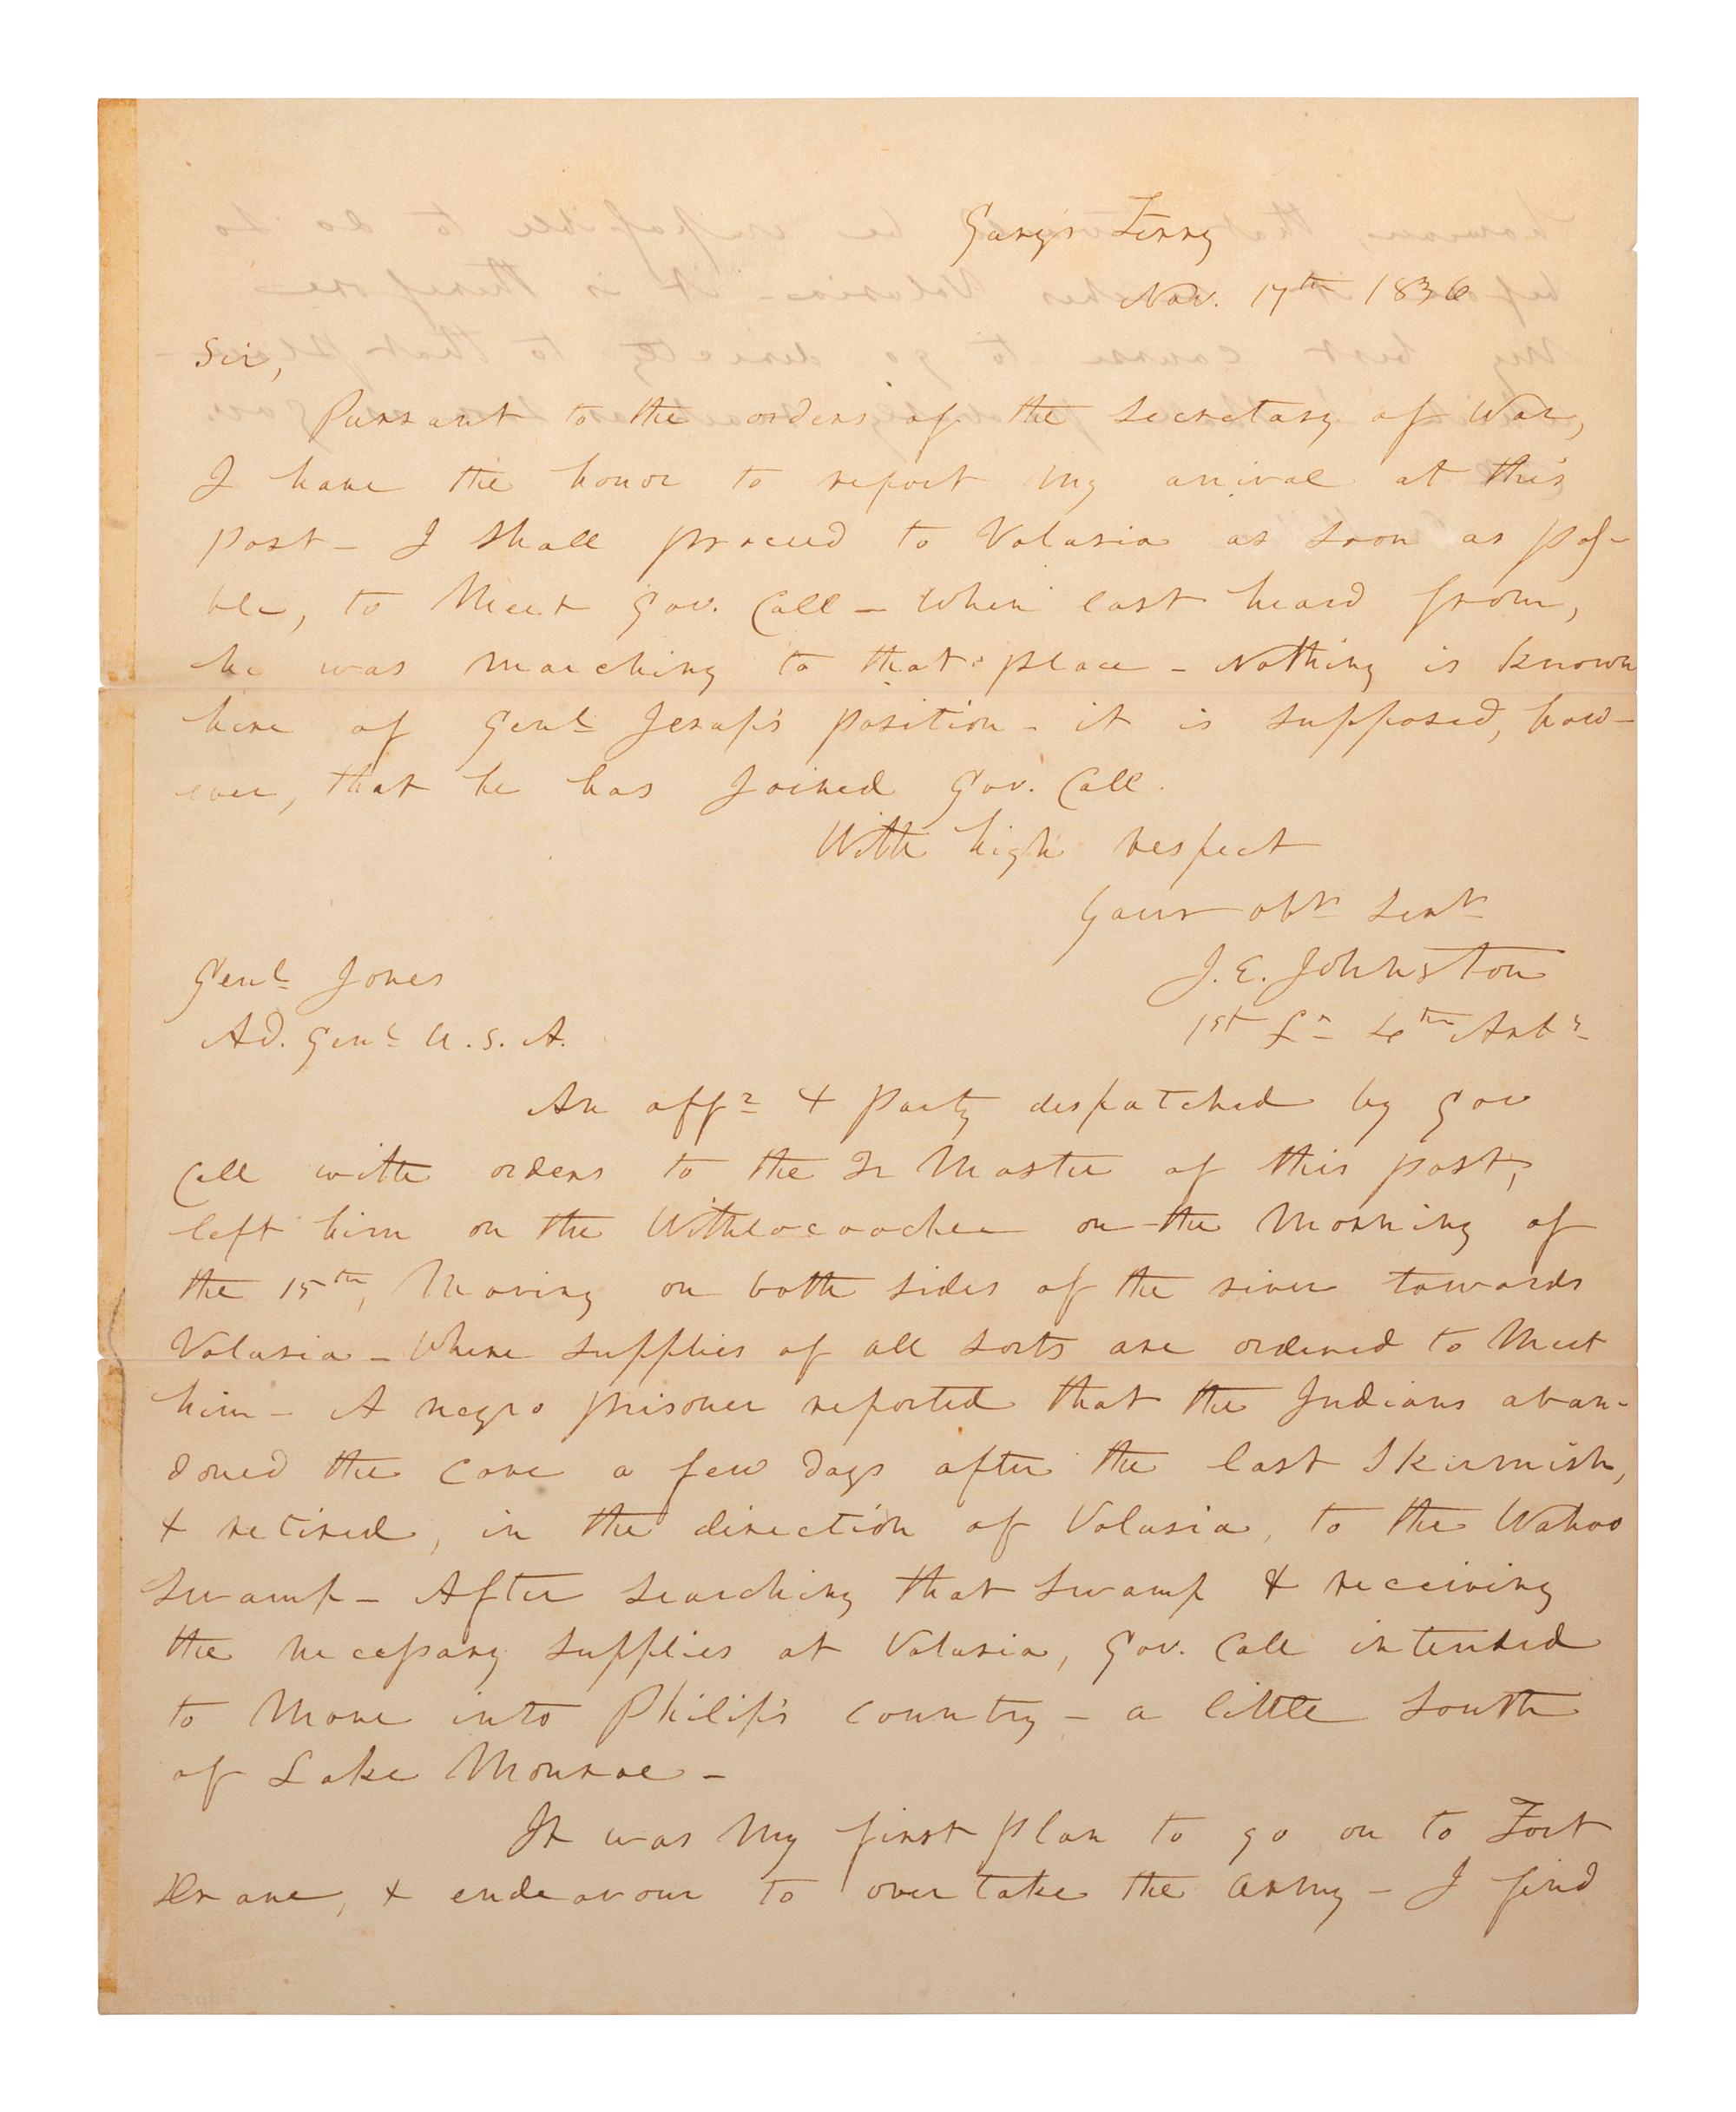 Garey's Ferry
Nov. 17th 1836
Sir,
Pursuant to the orders of the Secretary of War,
I have the honor to report my arrival at this
post – I shall proceed to Volusia as soon as possi-
ble, to meet Gov. Call – When last heard from,
he was marching to that place – Nothing is known
here of Genl. Jesup's position – it is supposed, how-
ever, that he has joined Gov. Call.
With high respect
Your obt. Servt.
J. E. Johnston
1st Lt. 4th Arty.
Genl. Jones
Ad. Genl. U. S. A.
An offr. & party despatched by Gov
Call with orders to the Qr Master of this post,
left him on the Withlocoochee on the morning of
the 15th, moving on both sides of the river towards
Volusia – Where supplies of all sorts are ordered to meet
him – A negro prisoner reported that the Indians aban-
doned the cove a few days after the last skirmish,
& retired, in the direction of Volusia, to the Wahoo
Swamp – After searching that swamp & receiving
the necessary supplies at Volusia, Gov. Call intended
to move into Philip's country – a little South
of Lake Monroe –
It was my first plan to go on to Fort
Drane, & endeavour to overtake the army – I find